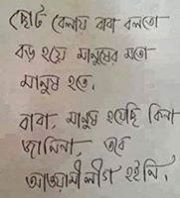 ছোট বেলায় বাবা বলতো
বড় হয়ে মানুষের মতো
মানুষ হতে,
বাবা, মানুষ হয়েছি কিনা
জানিনা তবে
আওয়ামীলীগ হইনি,